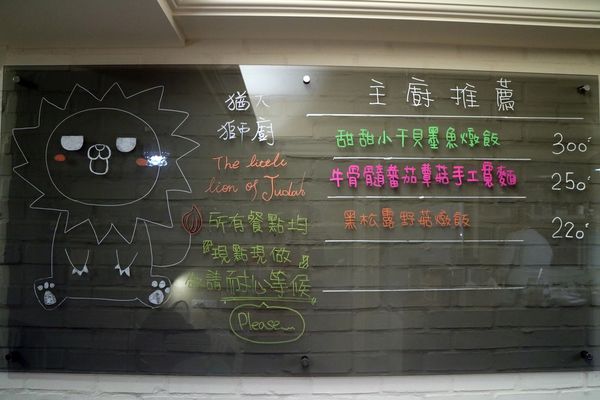 猶大
獅廚
The little
lion of Judah
所有餐點均
『現點現做』
請耐心等候
Please~
主廚推薦
甜甜小干貝墨魚燉飯 300
牛骨髓蕃茄蘑菇手工寬麵 250
黑松露野菇燉飯 220